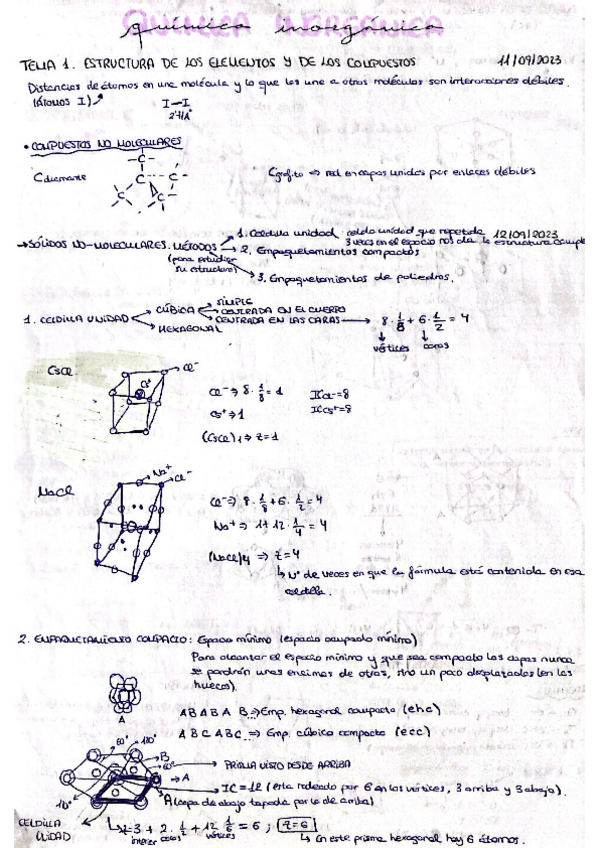 QUÍMICA INORGÁNICA
química inorgánica
TEMA 1. ESTRUCTURA DE LOS ELEMENTOS Y DE LOS COMPUESTOS 11/09/2023
Distancias de átomos en una molécula y lo que los une a otras moléculas son interacciones débiles.
(átomos I) I—I
• COMPUESTOS NO MOLECULARES
C diamante
C grafito ⇒ red en capas unidas por enlaces débiles
→ SÓLIDOS NO-MOLECULARES. MÉTODOS
(para estudiar su estructura)
1. Celdilla unidad celda unidad que repetida 12/09/2023
3 veces en el espacio nos da la estructura
2. Empaquetamientos compactos
3. Empaquetamientos de poliedros.
1. CELDILLA UNIDAD
CÚBICA
SIMPLE
CENTRADA EN EL CUERPO
CENTRADA EN LAS CARAS → 8·1/8 + 6·1/2 = 4
vértices caras
HEXAGONAL
CsCl
Cl⁻
Cs⁺
Cl⁻ ⇒ 8·1/8 = 1 ICCl⁻=8
Cs⁺ ⇒ 1 ICCs⁺=8
(CsCl)1 ⇒ Z=1
NaCl
Na⁺
Cl⁻
Cl⁻ ⇒ 8·1/8 + 6·1/2 = 4
Na⁺ ⇒ 1+12·1/4 = 4
(NaCl)4 ⇒ Z=4
↳ Nº de veces en que la fórmula está contenida en esa
celdilla.
2. EMPAQUETAMIENTO COMPACTO: Espacio mínimo (espacio ocupado mínimo)
Para alcanzar el espacio mínimo y que sea compacto las capas nunca
se pondrán unas encimas de otras, sino un poco desplazadas (en los
huecos).
A
A B A B A B ⇒ Emp. hexagonal compacto (ehc)
A B C A B C ⇒ Emp. cúbico compacto (ecc)
60° 120°
B
→ PRISMA VISTO DESDE ARRIBA
A
→ IC = 12 (esta rodeado por 6 en los vértices, 3 arriba y 3 abajo).
A (capa de abajo tapada por la de arriba)
CELDILLA
UNIDAD
Z=3 + 2·1/2 + 12·1/6 = 6 ; Z=6
interior caras vértices
↳ En este prisma hexagonal hay 6 átomos.